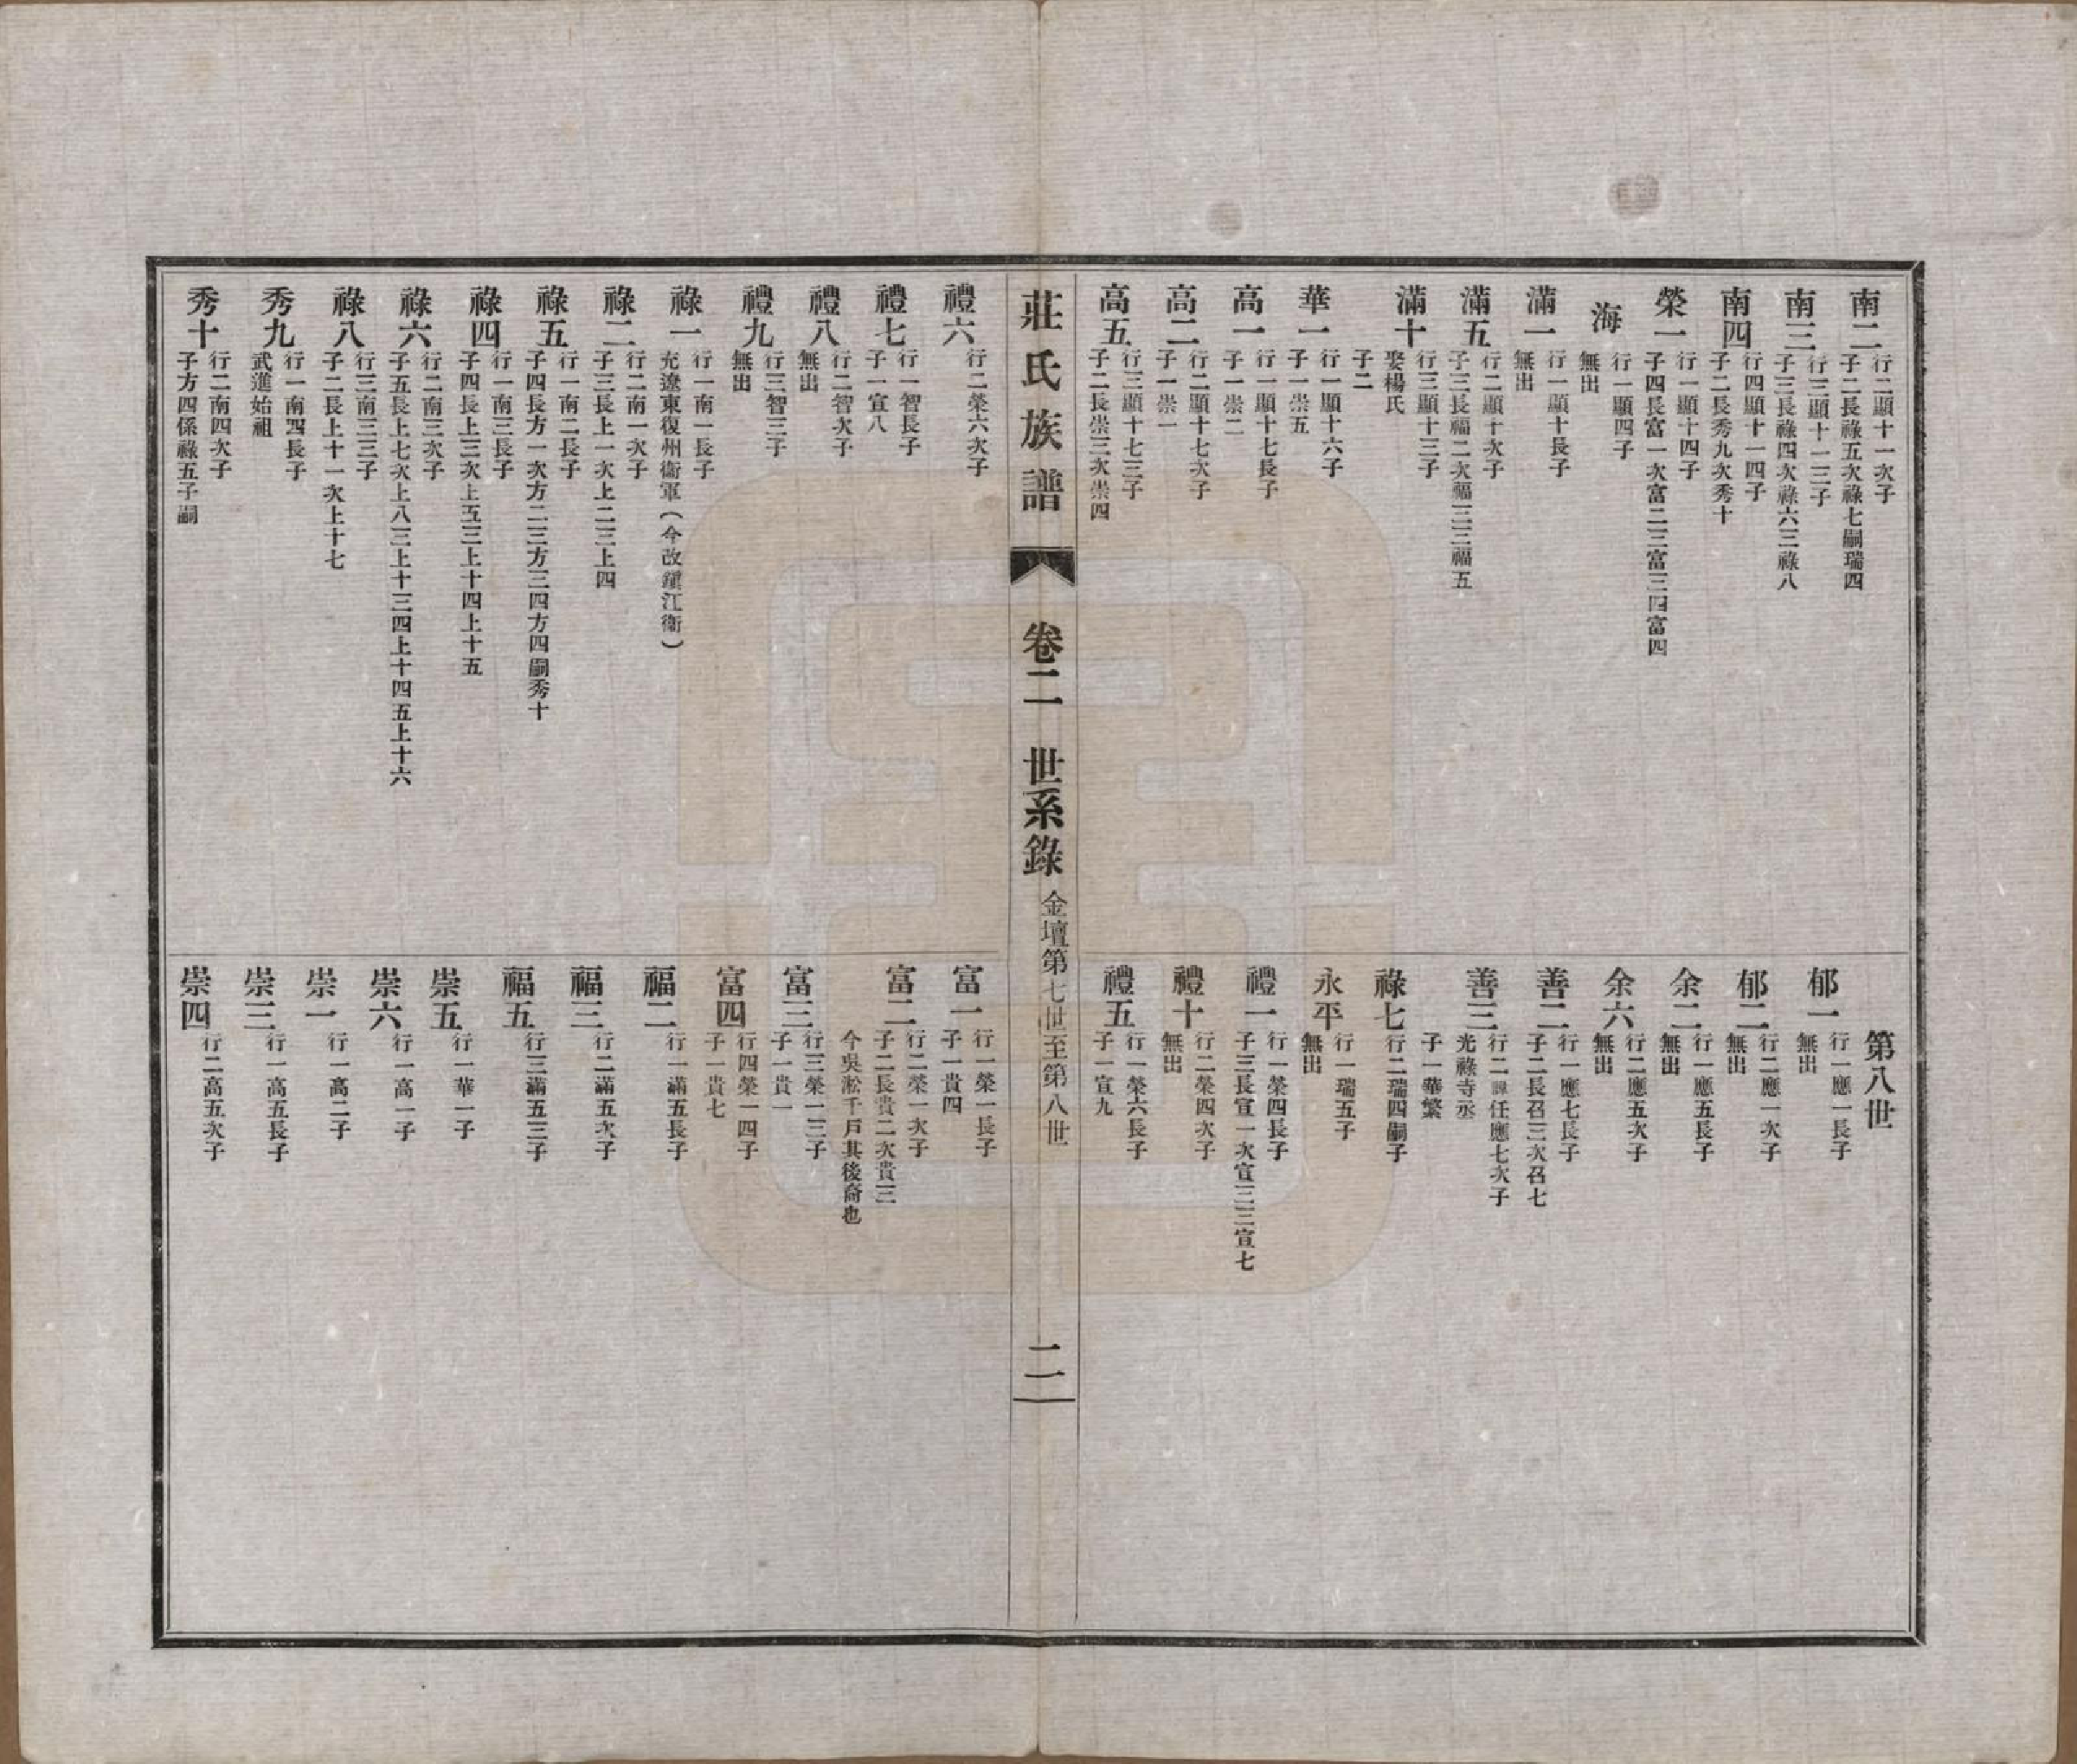 南二
行二顯十一次子
子二長祿五次祿七嗣瑞四
南三
行三顯十一三子
子三長祿四次祿六三祿八
南四
行四顯十一四子
子二長秀九次秀十
榮一
行一顯十四子
子四長富一次富二三富三四富四
海
行一顯四子
無出
滿一
行一顯十長子
無出
滿五
行二顯十次子
子三長福二次福三三福五
滿十
行三顯十三子
娶楊氏
子二
華一
行一顯十六子
子一崇五
高一
行一顯十七長子
子一崇二
高二
行二顯十七次子
子一崇一
高五
行三顯十七三子
子二長崇三次崇四
第八世
郁一
行一應一長子
無出
郁二
行二應一次子
無出
余二
行一應五長子
無出
余六
行二應五次子
無出
善二
行一應七長子
子二長召三次召七
善三
行二 任應七次子
光祿寺丞
子一華繁
祿七
行二瑞四嗣子
永平
行一瑞五子
無出
禮一
行一榮四長子
子三長宣一次宣三三宣七
禮十
行二榮四次子
無出
禮五
行一榮六長子
子一宣九
莊氏族譜 卷二 世系錄 金壇第七世至第八世 二
禮六
行二榮六次子
禮七
行一智長子
子一宣八
禮八
行二智次子
無出
禮九
行三智三子
無出
祿一
行一南一長子
充遼東復州衞軍(今改鎭江衞)
祿二
行二南一次子
子三長上一次上二三上四
祿五
行一南二長子
子四長方一次方二三方三四方四嗣秀十
祿四
行一南三長子
子四長上三次上五三上十四上十五
祿六
行二南三次子
子五長上七次上八三上十三四上十四五上十六
祿八
行三南三三子
子二長上十一次上十七
秀九
行一南四長子
武進始祖
秀十
行二南四次子
子方四係祿五子嗣
富一
行一榮一長子
子一貴四
富二
行二榮一次子
子二長貴二次貴三
今吳淞千戶其後裔也
富三
行三榮一三子
子一貴一
富四
行四榮一四子
子一貴七
福二
行一滿五長子
福三
行二滿五次子
福五
行三滿五三子
崇五
行一華一子
崇六
行一高一子
崇一
行一高二子
崇三
行一高五長子
崇四
行二高五次子